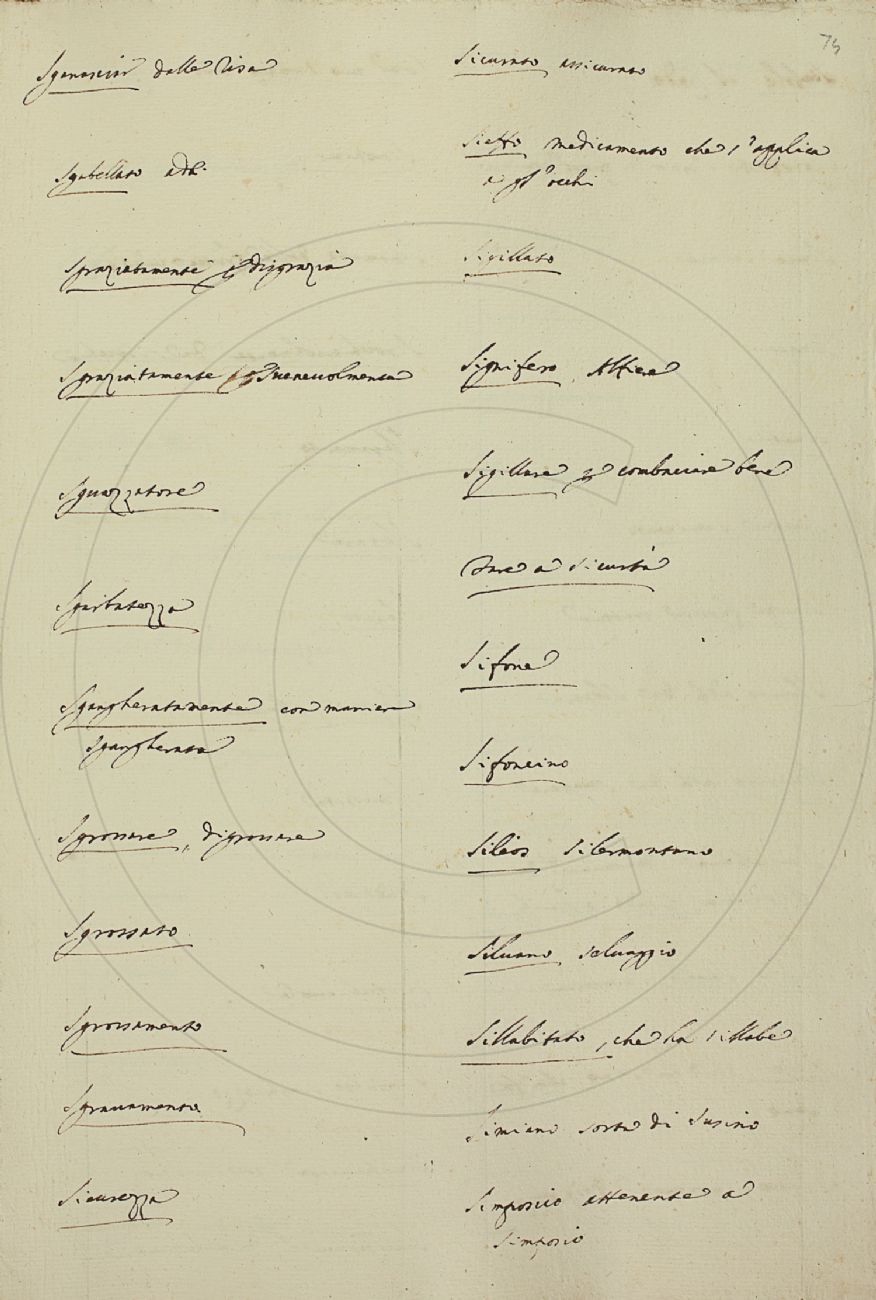 75
Sganasciar dalle risa
Sgabellato add.
Sgraziatamente p disgrazia
Sgraziatamente p Sueneuolmente
Sguazzatore
Sgarbatezza
Sgangheratamente con manier
sgangherata
Sgrossare, digrossare
Sgrossato
Sgrossamento
Sgrauamento
Sicurezza
Sicurato assicurato
Sieffo medicamento che s'applica
a gl'occhi
Sigillato
Signifero Alfiere
Sigillare p combaciare bene
Dare a sicurtà
Sifone
Sifoncino
Sileos Silermontano
Siluano, seluaggio
Sillabitato, che ha sillabe
Simiano sorta di susino
Simposico attenente a
simposio